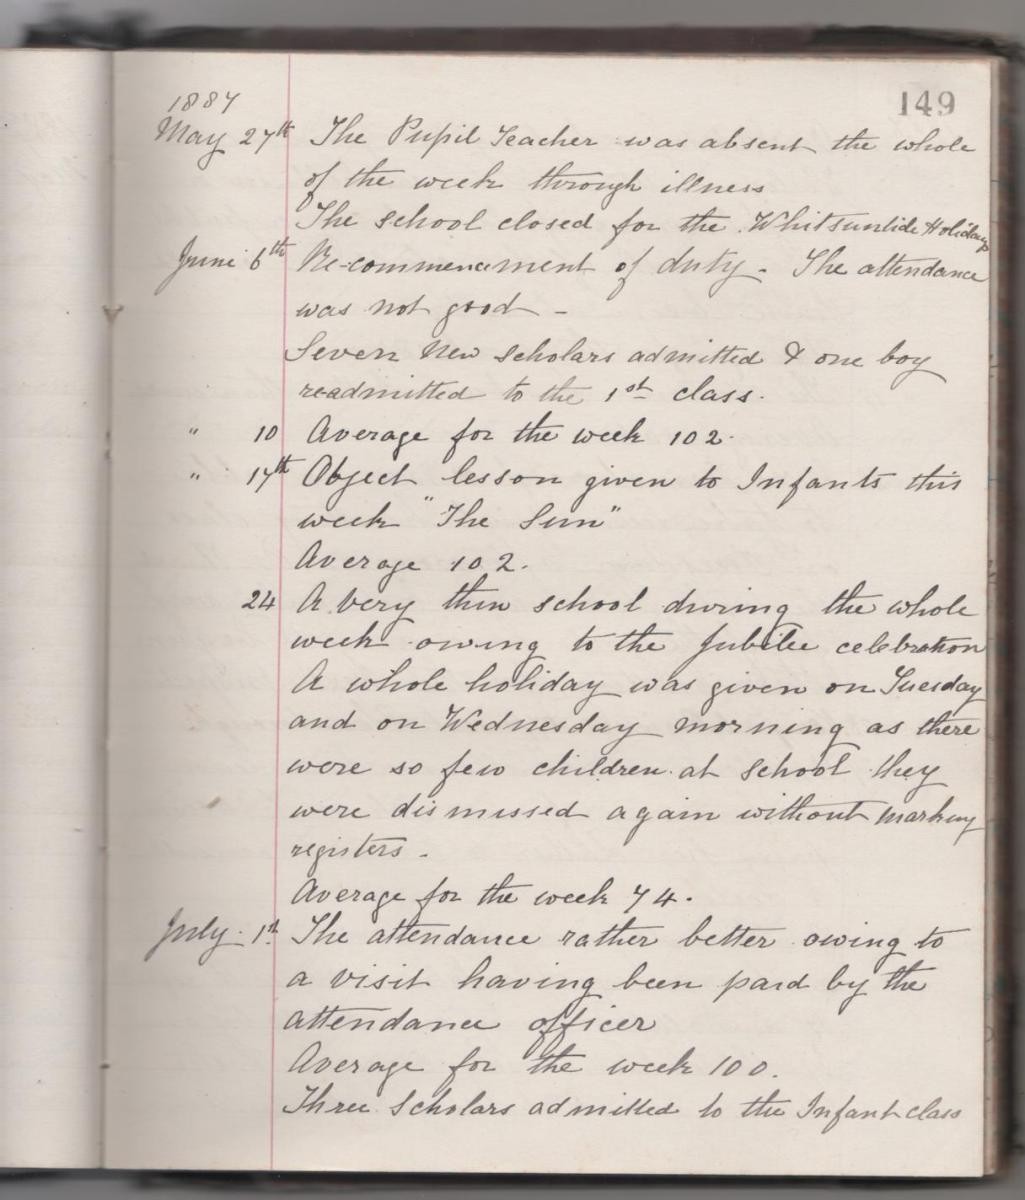 1887
149
May 27th The Pupil Teacher was absent the whole
of the week through illness
The school closed for the Whitsuntide Holidays
June 6th Re-commencement of duty. The attendance
was not good -
Seven New Scholars admitted & one boy
readmitted to the 1st class.
" 10 Average for the week 102.
" 17th Object lesson given to Infants this
week "The Sun"
Average 102.
24 A very thin school during the whole
week owing to the Jubilee celebration
A whole holiday was given on Tuesday
and on Wednesday morning as there
were so few children at school they
were dismissed again without marking
registers -
Average for the week 74.
July 1st The attendance rather better owing to
a visit having been paid by the
attendance officer
Average for the week 100.
Three Scholars admitted to the Infant class